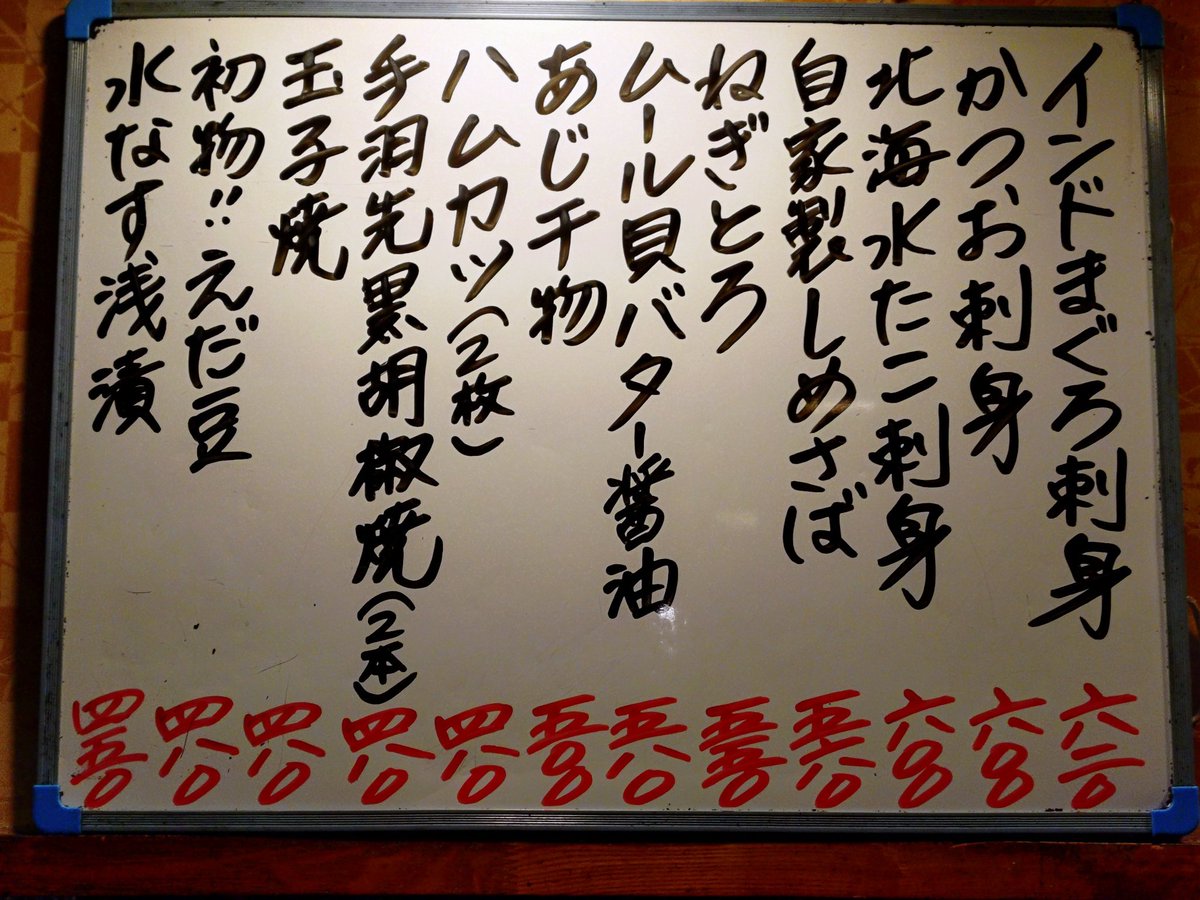 インドまぐろ刺身 六二〇
かつお刺身 六〇〇
北海水たこ刺身 六〇〇
自家製しめさば 五八〇
ねぎとろ 五五〇
ムール貝バター醤油 五八〇
あじ干物 五〇〇
ハムカツ(2枚) 四八〇
手羽先黒胡椒焼(2本) 四八〇
玉子焼 四八〇
初物!!えだ豆 四八〇
水なす浅漬 四五〇